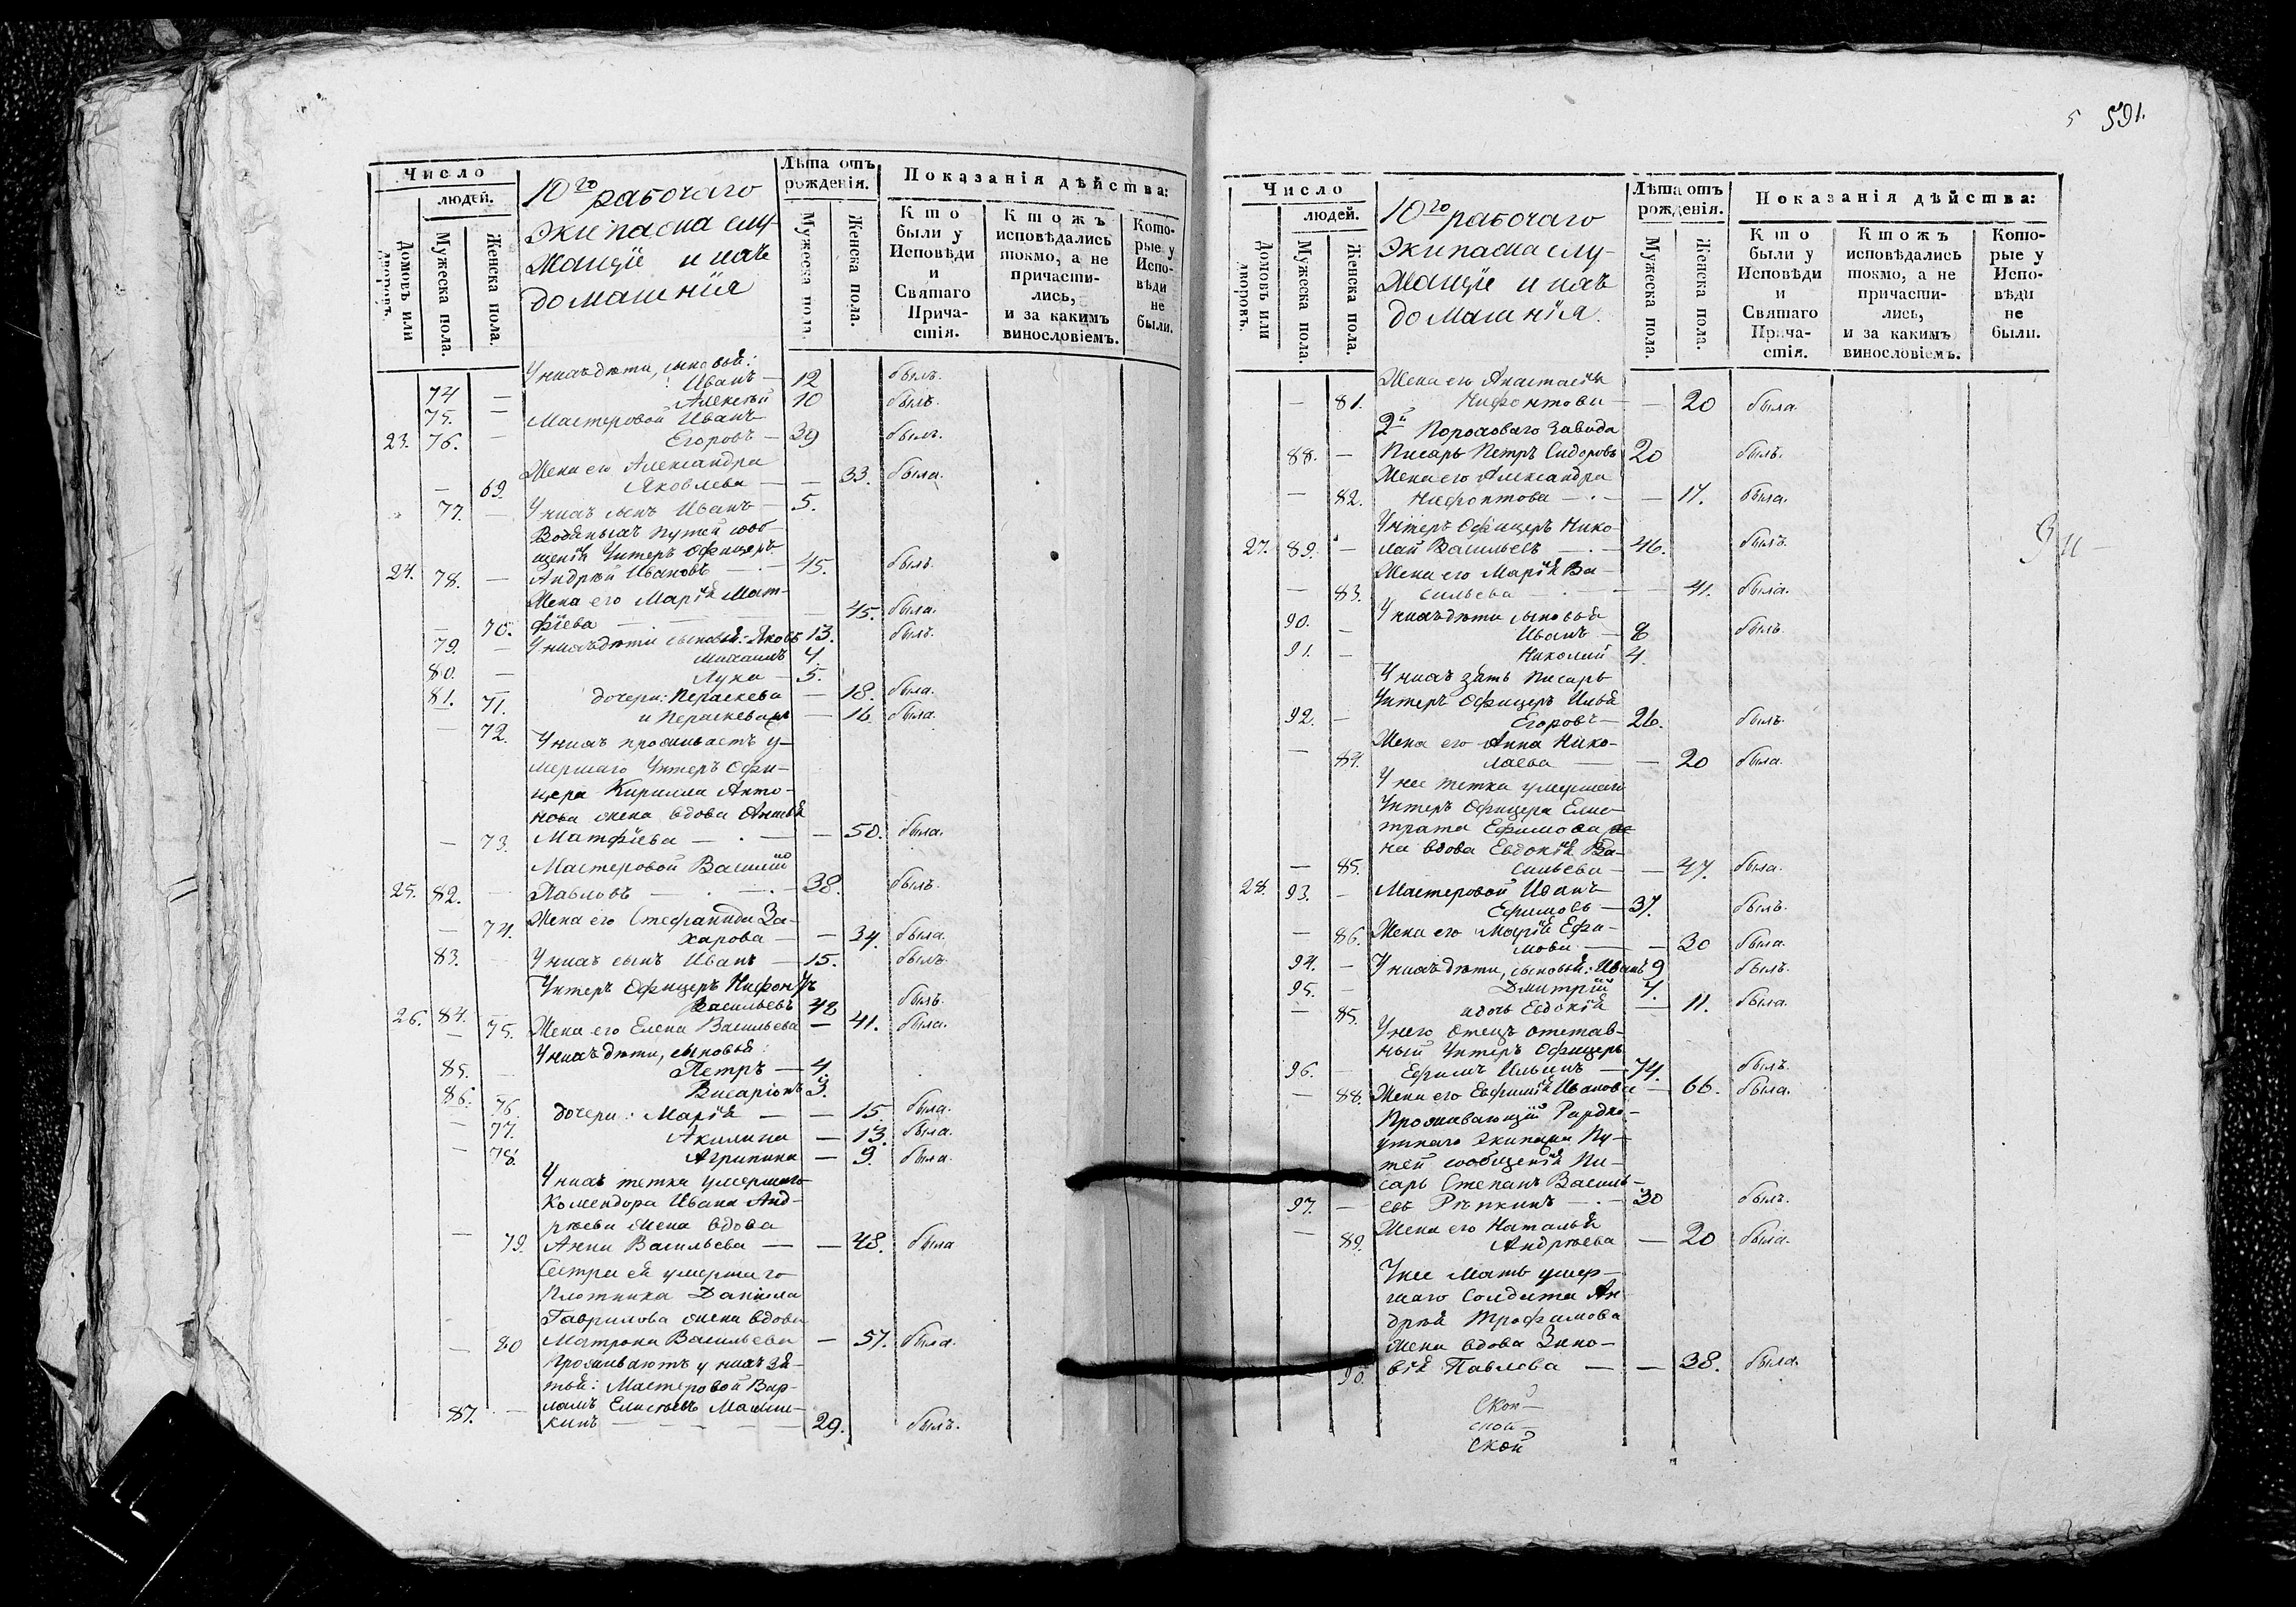 Число
людей.
Домовъ или дворовъ.
Мужеска пола.
Женска пола.
10го рабочаго
Экипажа слу-
жащiе и ихъ
домашнiя
Лѣта отъ
рожденiя.
Мужеска пола.
Женска пола.
Показанiя дѣйства:
Кто
были у
Исповѣди
и
Святаго
Прича-
стiя.
Ктожъ
исповѣдались
токмо, а не
причасти-
лись,
и за какимъ
винословiемъ.
Кото-
рые у
Испо-
вѣди
не
были.
У нихъ дѣти, сыновья:
74 — Иванъ — 12 былъ.
75. — Алексѣй 10 былъ.
Мастеровой Иванъ
23. 76. — Егоровъ — 39 былъ.
Жена его Александра
— 69. Яковлева — — 33. была.
77. — У нихъ сынъ Иванъ — 5.
Водяныхъ Путей сооб-
щенiя Унтеръ Офицеръ
24. 78. — Андрей Ивановъ — 45. былъ.
Жена его Марiя Мат-
— 70. фiева — — 45. была.
79. — У нихъ дѣти сыновья: Яковъ 13. былъ.
80. — Михаилъ 7.
81. — Лука — 5.
71. дочери: Пераскева — 18. была.
— 72. и Пераскева — 16 была.
У нихъ проживаетъ у-
мершаго Унтеръ Офи-
цера Кирилла Анто-
нова жена вдова
— 73. Матфiева — — 50. была.
Мастеровой Василiй
25. 82. — Павловъ — 38. былъ.
Жена его Стефанида За-
— 74. харова — — 34. была.
83. — У нихъ сынъ Иванъ — 15. былъ.
Унтеръ Офицеръ Нифонтъ
26. 84. — Васильевъ 42 былъ.
— 75. Жена его Елена Васильева — 41. была.
У нихъ дѣти, сыновья:
85. — Петръ — 4.
86. Висарiонъ 3.
76. дочери: Марiя — — 15. была.
— 77. Акилина — 13. была.
— 78. Агрипина — 9. была.
У нихъ тетка умершаго
Комендора Ивана Анд-
рѣева жена вдова
— 79. Анна Васильева — — 48. была
Сестра ея умершаго
Плотника Данiила
Гаврилова жена вдова
— 80 Матрона Васильева — 57. была.
Проживаютъ у нихъ зя-
тья: Мастеровой Вар-
ламъ Елисѣевъ
87. — кинъ — — — — 29. былъ.
5 591.
Число
людей.
Домовъ или дворовъ.
Мужеска пола.
Женска пола.
10го рабочаго
Экипажа слу-
жащiе и ихъ
домашнiя.
Лѣта отъ
рожденiя.
Мужеска пола.
Женска пола.
Показанiя дѣйства:
Кто
были у
Исповѣди
и
Святаго
Прича-
стiя.
Ктожъ
исповѣдались
токмо, а не
причасти-
лись,
и за какимъ
винословiемъ.
Кото-
рые у
Испо-
вѣди
не
были.
Жена его Анастасiя
— 81. Нифонтова — — 20 была.
2й Пороховаго Завода
88. — Писарь Петръ Сидоровъ 20 былъ.
Жена его Александра
— 82. Нифонтова — — 17. была.
Унтеръ Офицеръ Нико-
27. 89. — лай Васильевъ — 46. былъ.
Жена его Марiя Ва-
— 83. сильева — — 41. была.
90. У нихъ дѣти сыновья
— Иванъ — 8 былъ.
91. — Николай 4.
У нихъ зять Писарь
Унтеръ Офицеръ Илья
92. — Егоровъ — 26. былъ.
Жена его Анна Нико-
— 84. лаева — — 20 была.
У нее тетка умершаго
Унтеръ Офицера Елис-
трата Ефимова же
на вдова Евдокiя Ва-
— 85. сильева — — 47. была.
28. 93. — Мастеровой Иванъ
Ефимовъ — 37. былъ.
— 86. Жена его Марiя Ефи-
мова — — 30 была.
94. — У нихъ дѣти, сыновья: Иванъ 9 былъ.
95. — Дмитрiй 7.
— 85. дочь Евдокiя — 11. была.
У него Отецъ отстав-
ный Унтеръ Офицеръ
96. — Ефимъ Ильинъ — 74. былъ.
— 88. Жена его Евфимiя Иванова — 66. была.
Проживающiй
Экипажа Пу-
тей сообщенiя Пи-
сарь Степанъ Василь-
97. — евъ Рѣпкинъ — 30 былъ.
Жена его Наталья
— 89. Андрѣева — 20 была.
У нее Мать умер-
шаго Солдата Ан
дрѣя Трофимова
жена вдова Зино-
90 вiя Павлова — — 38. была.
Скон-
ской-
ской